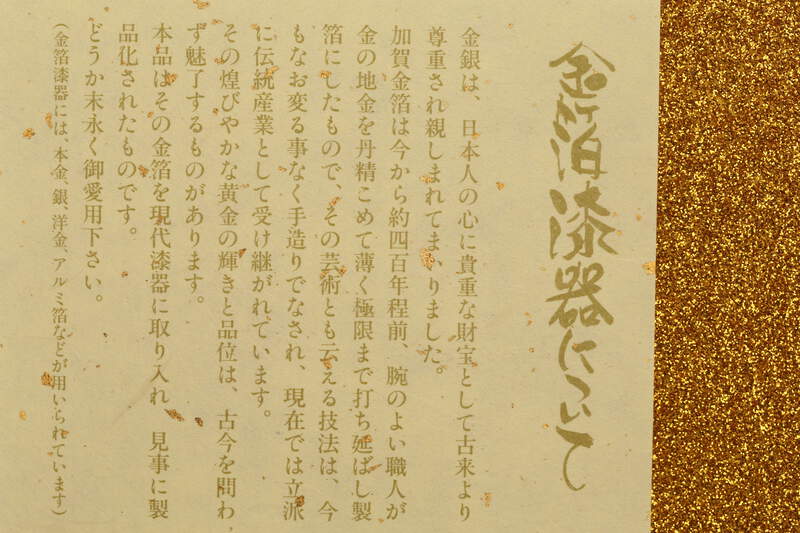 金箔漆器について
金銀は、日本人の心に貴重な財宝として古来より
尊重され親しまれてまいりました。
加賀金箔は今から約四百年程前、腕のよい職人が
金の地金を丹精こめて薄く極限まで打ち延ばし製
箔にしたもので、その芸術とも云える技法は、今
もなお変る事なく手造りでなされ、現在では立派
に伝統産業として受け継がれています。
その煌びやかな黄金の輝きと品位は、古今を問わ
ず魅了するものがあります。
本品はその金箔を現代漆器に取り入れ、見事に製
品化されたものです。
どうか末永く御愛用下さい。
（金箔漆器には、本金、銀、洋金、アルミ箔などが用いられています）